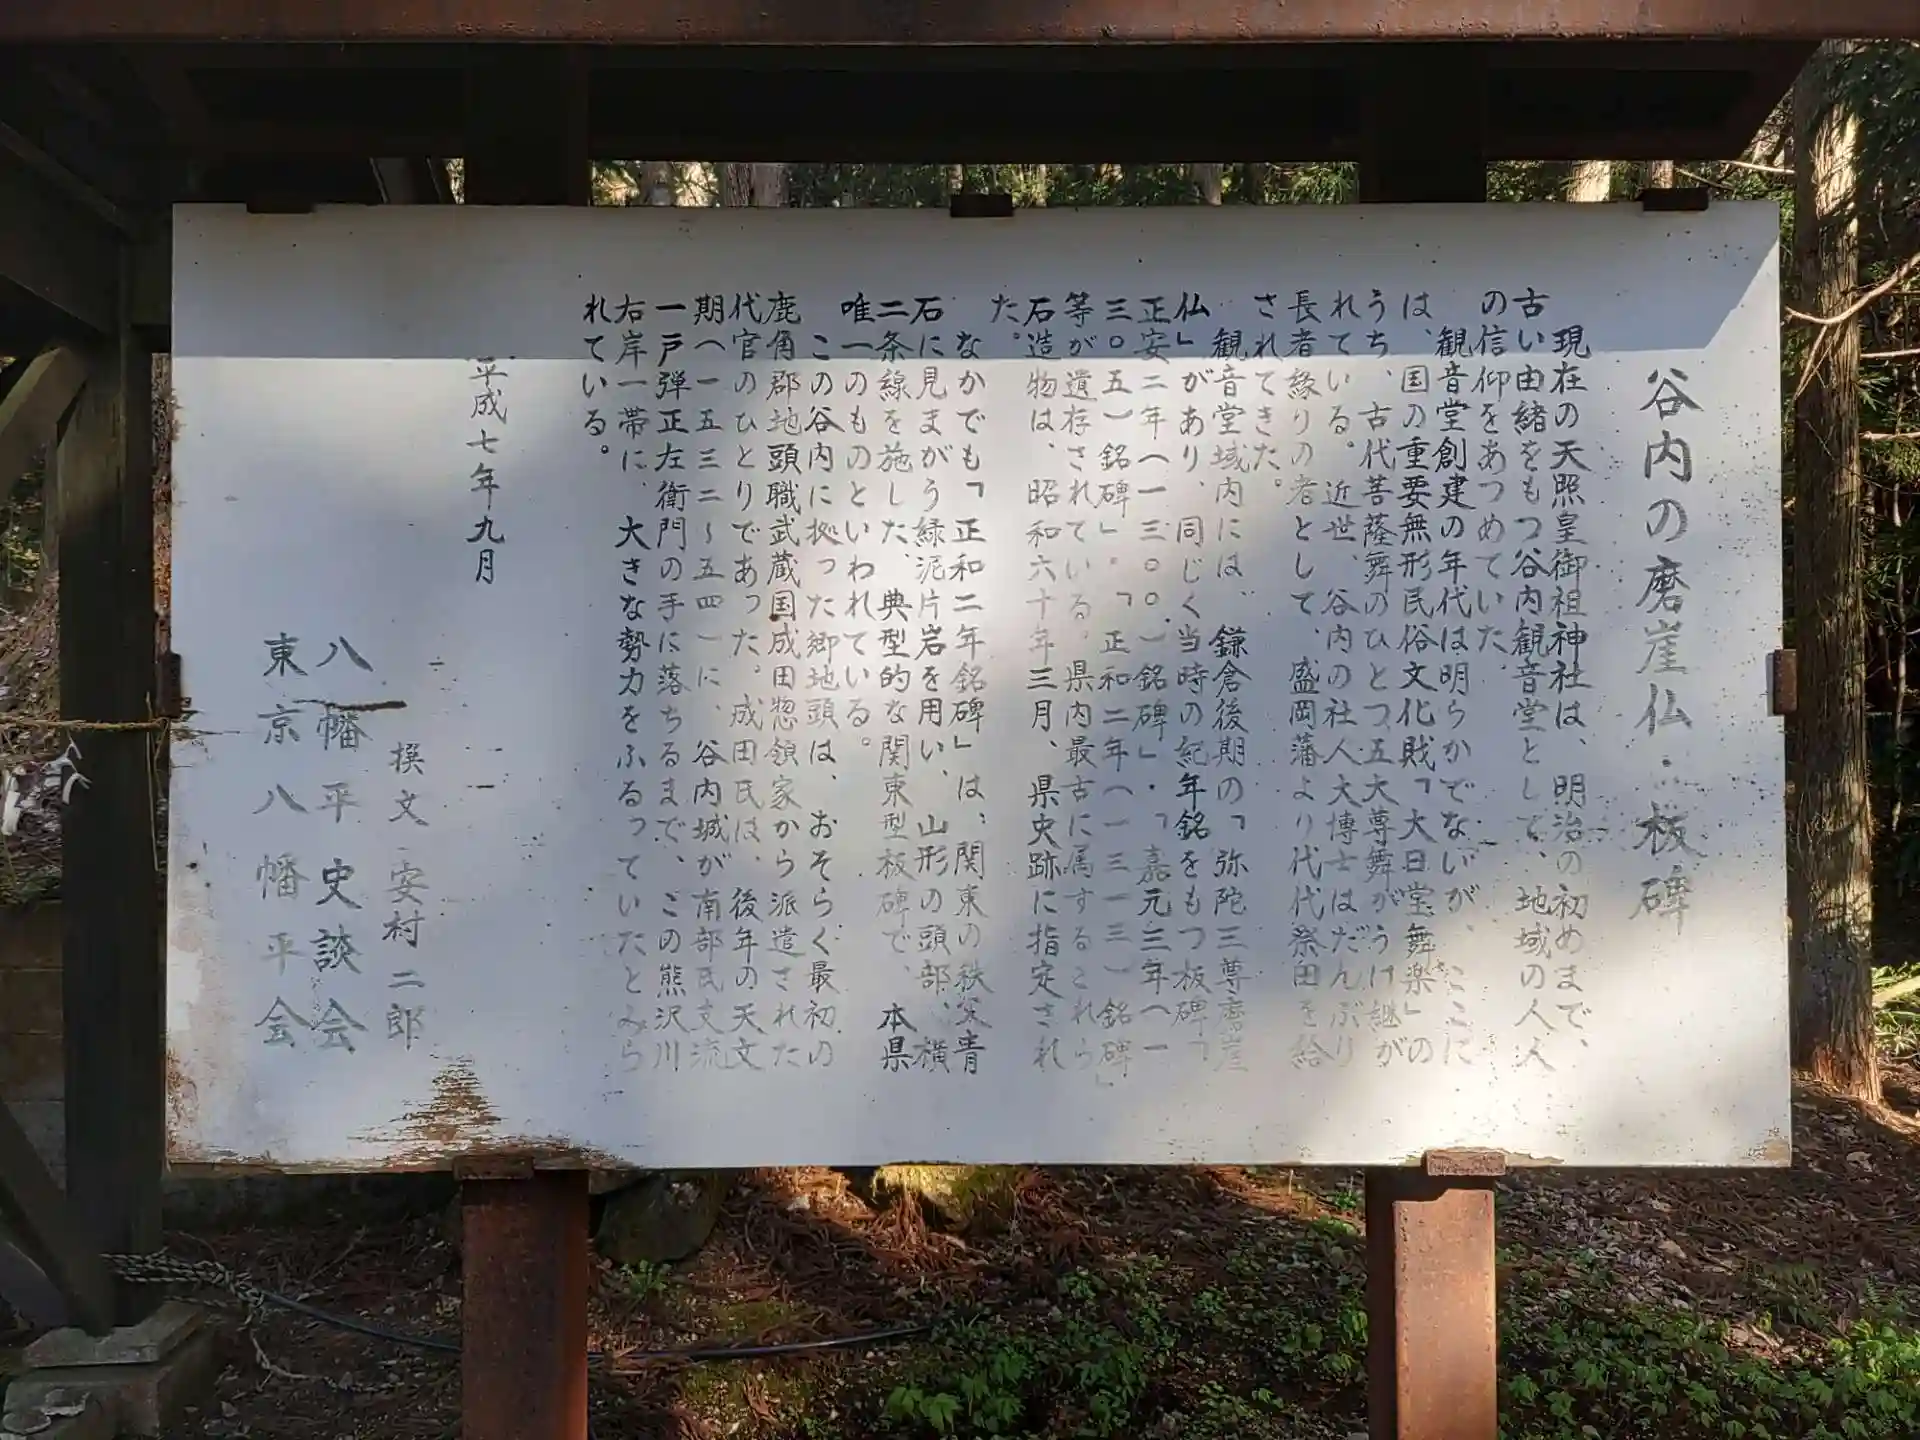 谷内の磨崖仏・板碑
現在の天照皇御祖神社は、明治の初めまで、
古い由緒をもつ谷内観音堂として、地域の人人
の信仰をあつめていた。
観音堂創建の年代は明らかでないが、ここに
は、国の重要無形民俗文化財「大日堂舞楽」の
うち、古代菩薩舞のひとつ五大尊舞がうけ継が
れている。近世、谷内の社人大博士はだんぶり
長者縁りの者として、盛岡藩より代代祭田を給
されてきた。
観音堂域内には、鎌倉後期の「弥陀三尊磨崖
仏」があり、同じく当時の紀年銘をもつ板碑「
正安二年（一三〇〇）銘碑」・「嘉元三年（一
三〇五）銘碑」。「正和二年（一三一三）銘碑」
等が遺存されている。県内最古に属するこれら
石造物は、昭和六十年三月、県史跡に指定され
た。
なかでも「正和二年銘碑」は、関東の秩父青
石に見まがう緑泥片岩を用い、山形の頭部、横
二条線を施した、典型的な関東型板碑で、本県
唯一のものといわれている。
この谷内に拠った郷地頭は、おそらく最初の
鹿角郡地頭職武蔵国成田惣領家から派遣された
代官のひとりであった。成田氏は、後年の天文
期（一五三二～五四）に、谷内城が南部氏支流
一戸弾正左衛門の手に落ちるまで、この熊沢川
右岸一帯に、大きな勢力をふるっていたとみら
れている。
平成七年九月
撰文 安村二郎
八幡平史談会
東京八幡平会